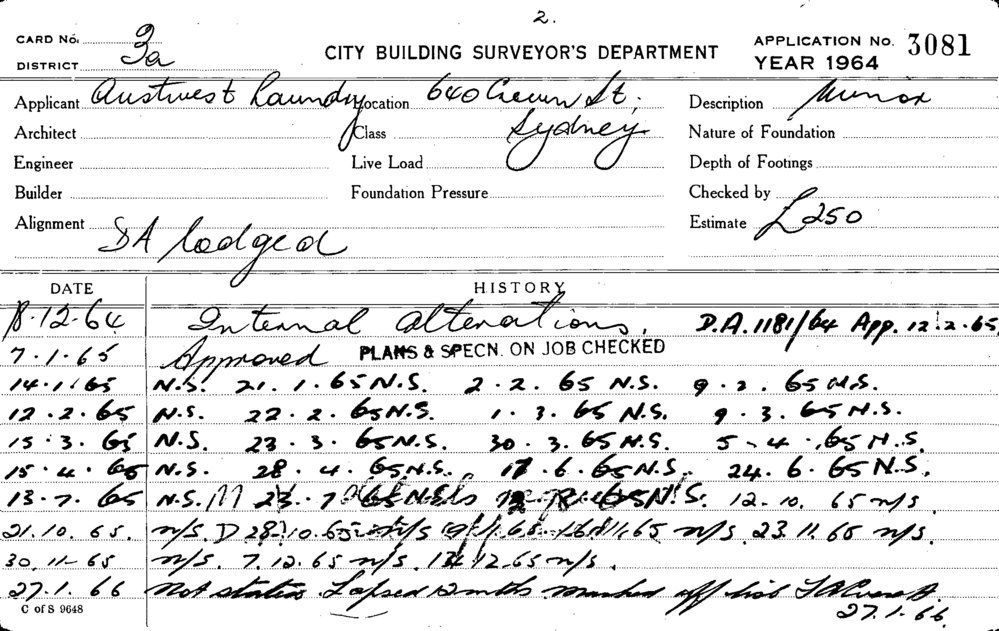 2.
CARD No. 3a CITY BUILDING SURVEYOR'S DEPARTMENT APPLICATION No. 3081
DISTRICT YEAR 1964
Applicant Austwest Laundry Location 640 Crown St, Description Minor
Architect Class Sydney Nature of Foundation
Engineer Live Load Depth of Footings
Builder Foundation Pressure Checked by
Alignment DA lodged Estimate £250
DATE HISTORY
8.12.64 Internal alterations. D.A. 1181/64 App. 12.2.65.
7.1.65 Approved PLANS & SPECN. ON JOB CHECKED
14.1.65 N.S. 21.1.65 N.S. 2.2.65 N.S. 9.2.65 N.S.
12.2.65 N.S. 22.2.65 N.S. 1.3.65 N.S. 9.3.65 N.S.
15.3.65 N.S. 23.3.65 N.S. 30.3.65 N.S. 5.4.65 N.S.
15.4.65 N.S. 28.4.65 N.S. 17.6.65 N.S. 24.6.65 N.S.
13.7.65 N.S. 23.7.65 N.S. 65 N.S. 12.10.65 n/s
21.10.65. n/s. 28.10.65 n/s 65 n/s. 23.11.65 n/s.
30.11.65 n/s. 7.12.65 n/s. 12.65 n/s.
27.1.66 Not started Lapsed 12 mths. marked off list
C of S 9648 27.1.66